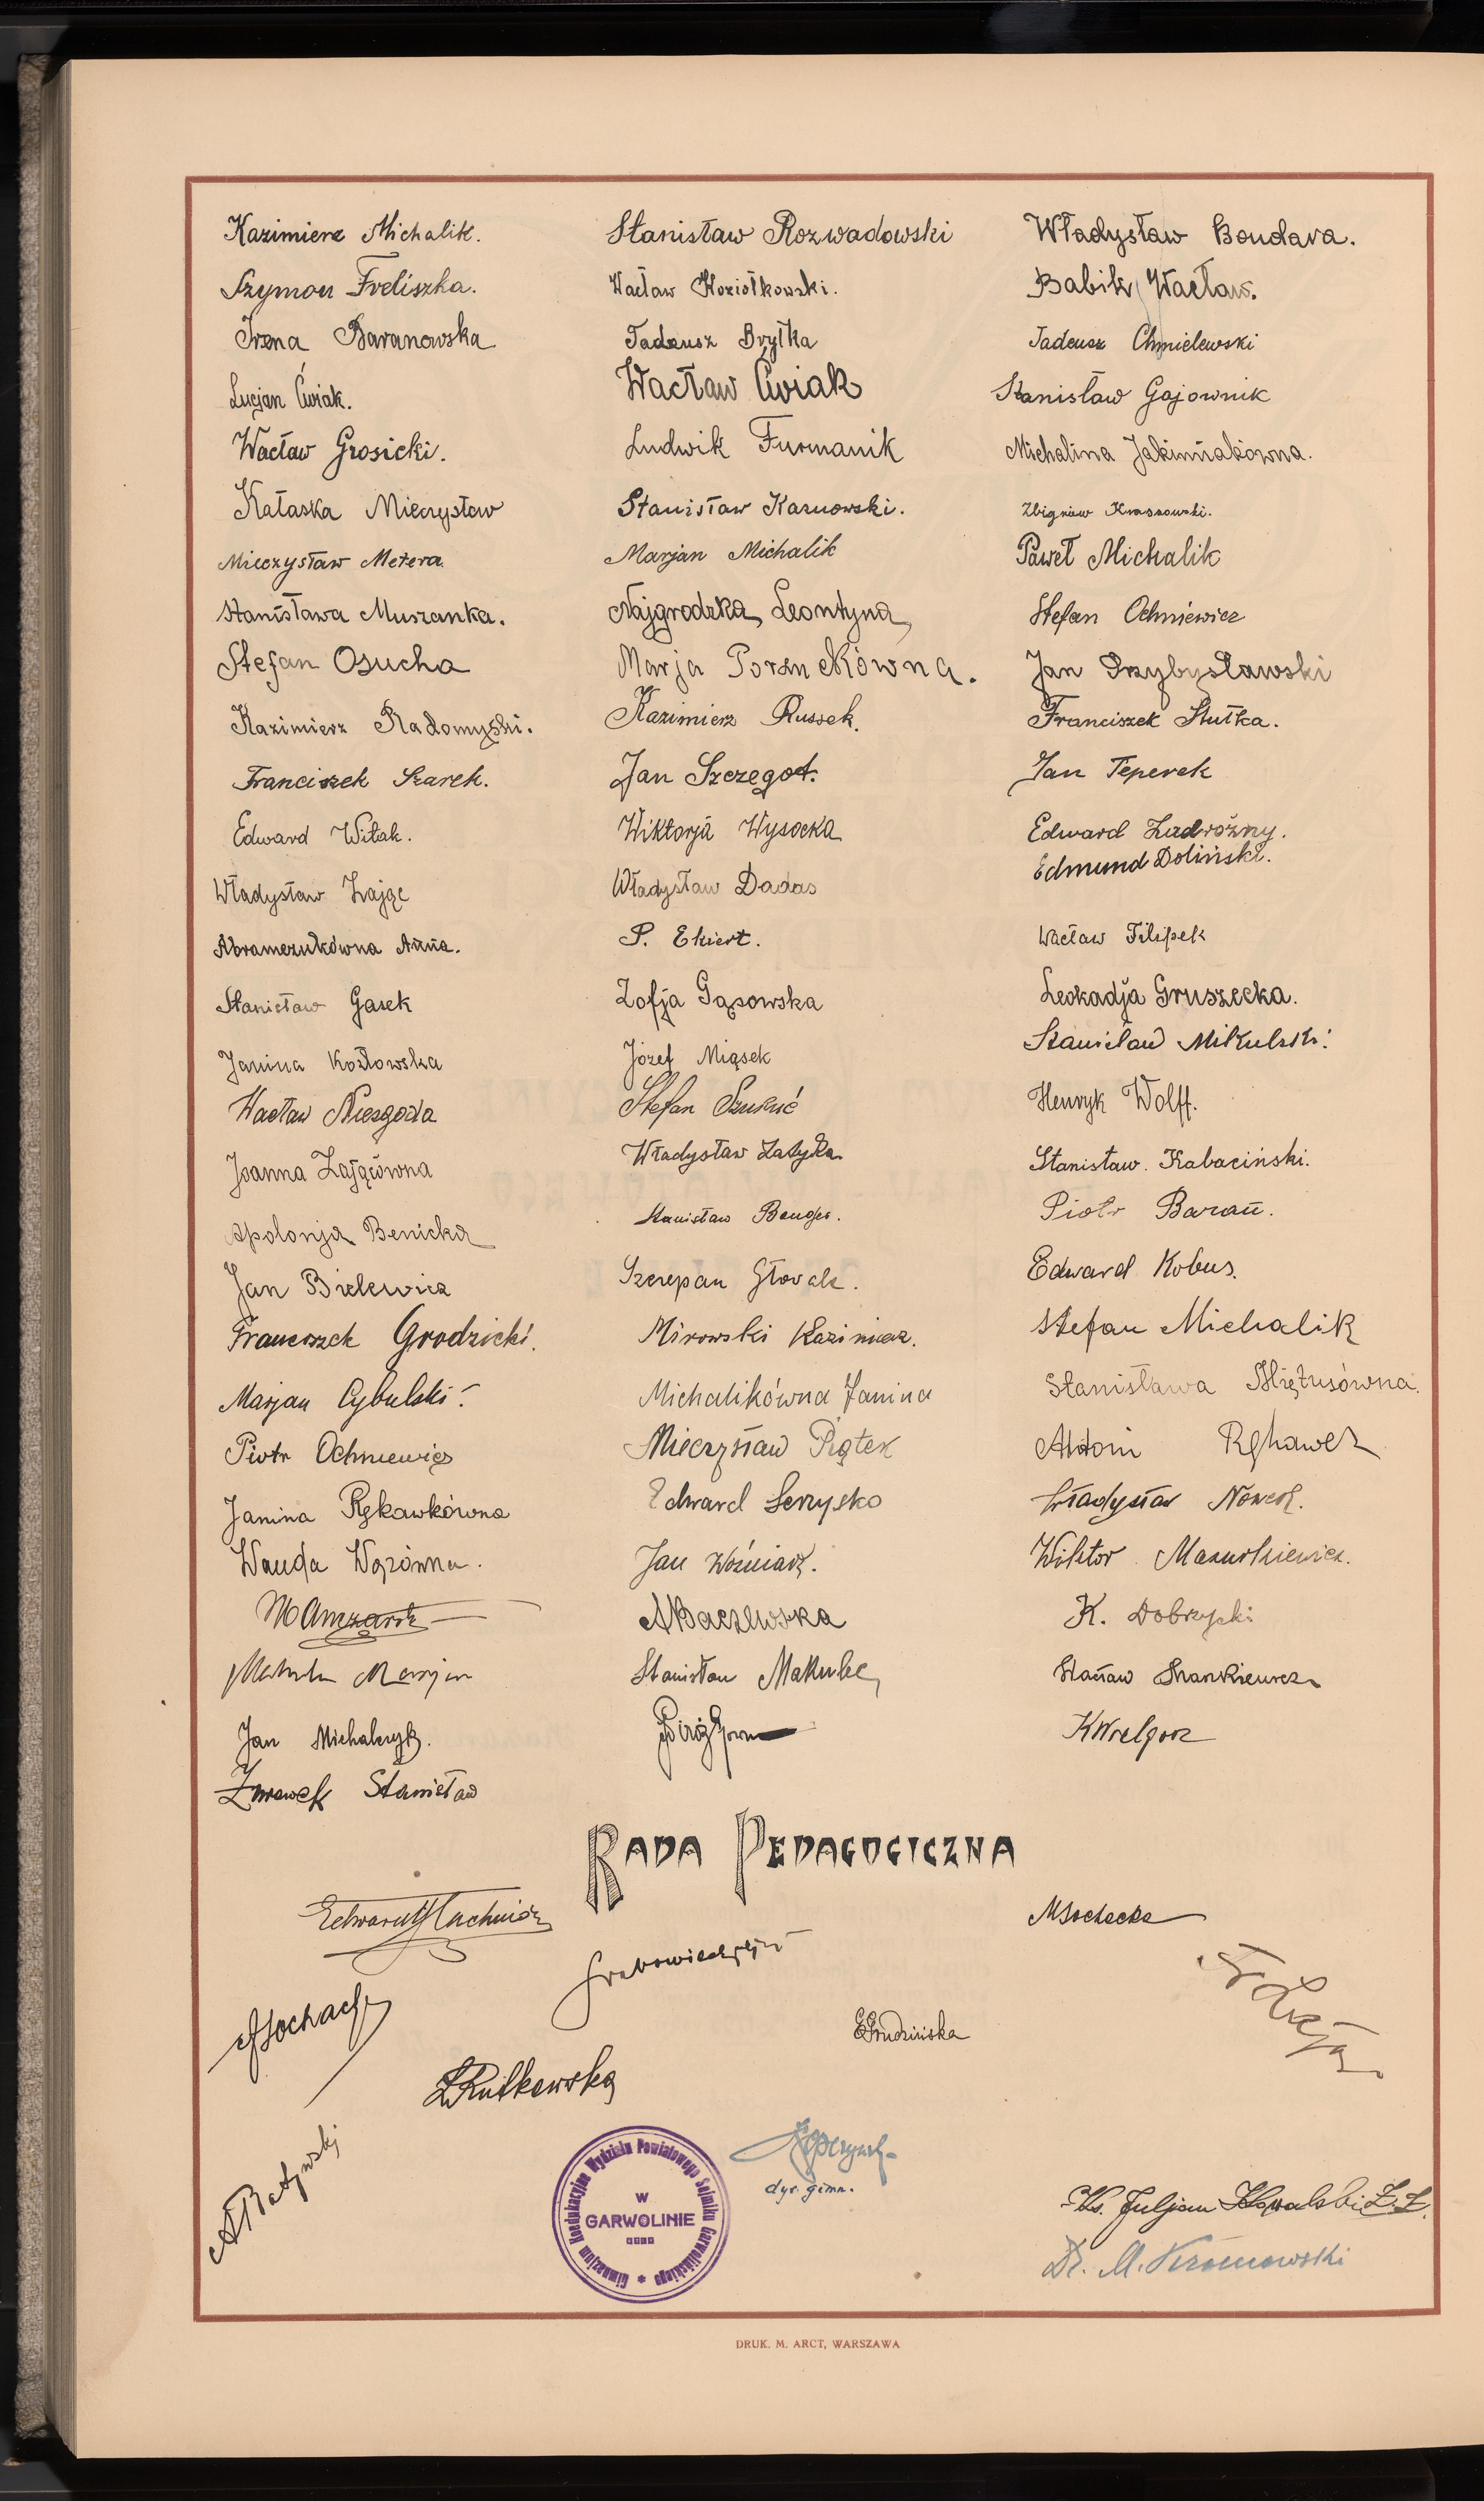 Kazimierz Michalik.
Szymon Freliszka.
Irena Baranowska
Lucjan Ćwiak.
Wacław Grosicki.
Kałaska Mieczysław
Mieczysław Metera.
Stanisława Muszanka.
Stefan Osucha
Kazimierz Radomyski.
Franciszek Szarek.
Edward Witak.
Władysław Zając
Abramczukówna Anna.
Stanisław Gasek
Janina Kozłowska
Wacław Niezgoda
Joanna Zającówna
Apolonja Benicka
Jan Bielewicz
Franciszek Grodzicki.
Marjan Cybulski.
Piotr Ochniewicz
Janina Rękawkówna
Wanda
Marjan
Jan Michalczyk.
Żurawek Stanisław
Stanisław Rozwadowski
Wacław Koziołkowski.
Tadeusz Bryłka
Wacław Ćwiak
Ludwik Furmanik
Stanisław Karnowski.
Marjan Michalik
Najgrodzka Leontyna
Marja Porznekówna.
Kazimierz Russek.
Jan Szczegot.
Wiktorja Wysocka
Władysław Dadas
P. Ekiert.
Zofja Gąsowska
Józef Miąsek
Stefan
Władysław Zatyka
Stanisław
Szczepan Głowala.
Mirowski Kazimierz.
Michalikówna Janina
Mieczysław Piątek
Edward Serzysko
Jan Woźniak.
ABaczewska
Stanisław Makulec
Władysław Bondara.
Babik Wacław.
Tadeusz Chmielewski
Stanisław Gajownik
Michalina Jakimiakówna.
Zbigniew Krassowski.
Paweł Michalik
Stefan Ochniewicz
Jan Przybysławski
Franciszek Stułka.
Jan Teperek
Edward Zadrożny.
Edmund Doliński.
Wacław Filipek
Leokadja Gruszecka.
Stanisław Mikulski.
Henryk Wolff.
Stanisław Kabaciński.
Piotr Baran.
Edward Kobus.
Stefan Michalik
Stanisława Miętusówna.
Antoni Rękawek
Władysław Nowek.
Wiktor Mazurkiewicz.
K. Dobrzycki
RADA PEDAGOGICZNA
MSochacka
Grabowiecki
ASochacki
EGrudzińska
ZRutkowska
Gimnazjum Koedukacyjne Wydziału Powiatowego Sejmiku Garwolińskiego
W
GARWOLINIE
dyr. gimn.
Ks. Juljan Kowalski
DRUK. M. ARCT, WARSZAWA